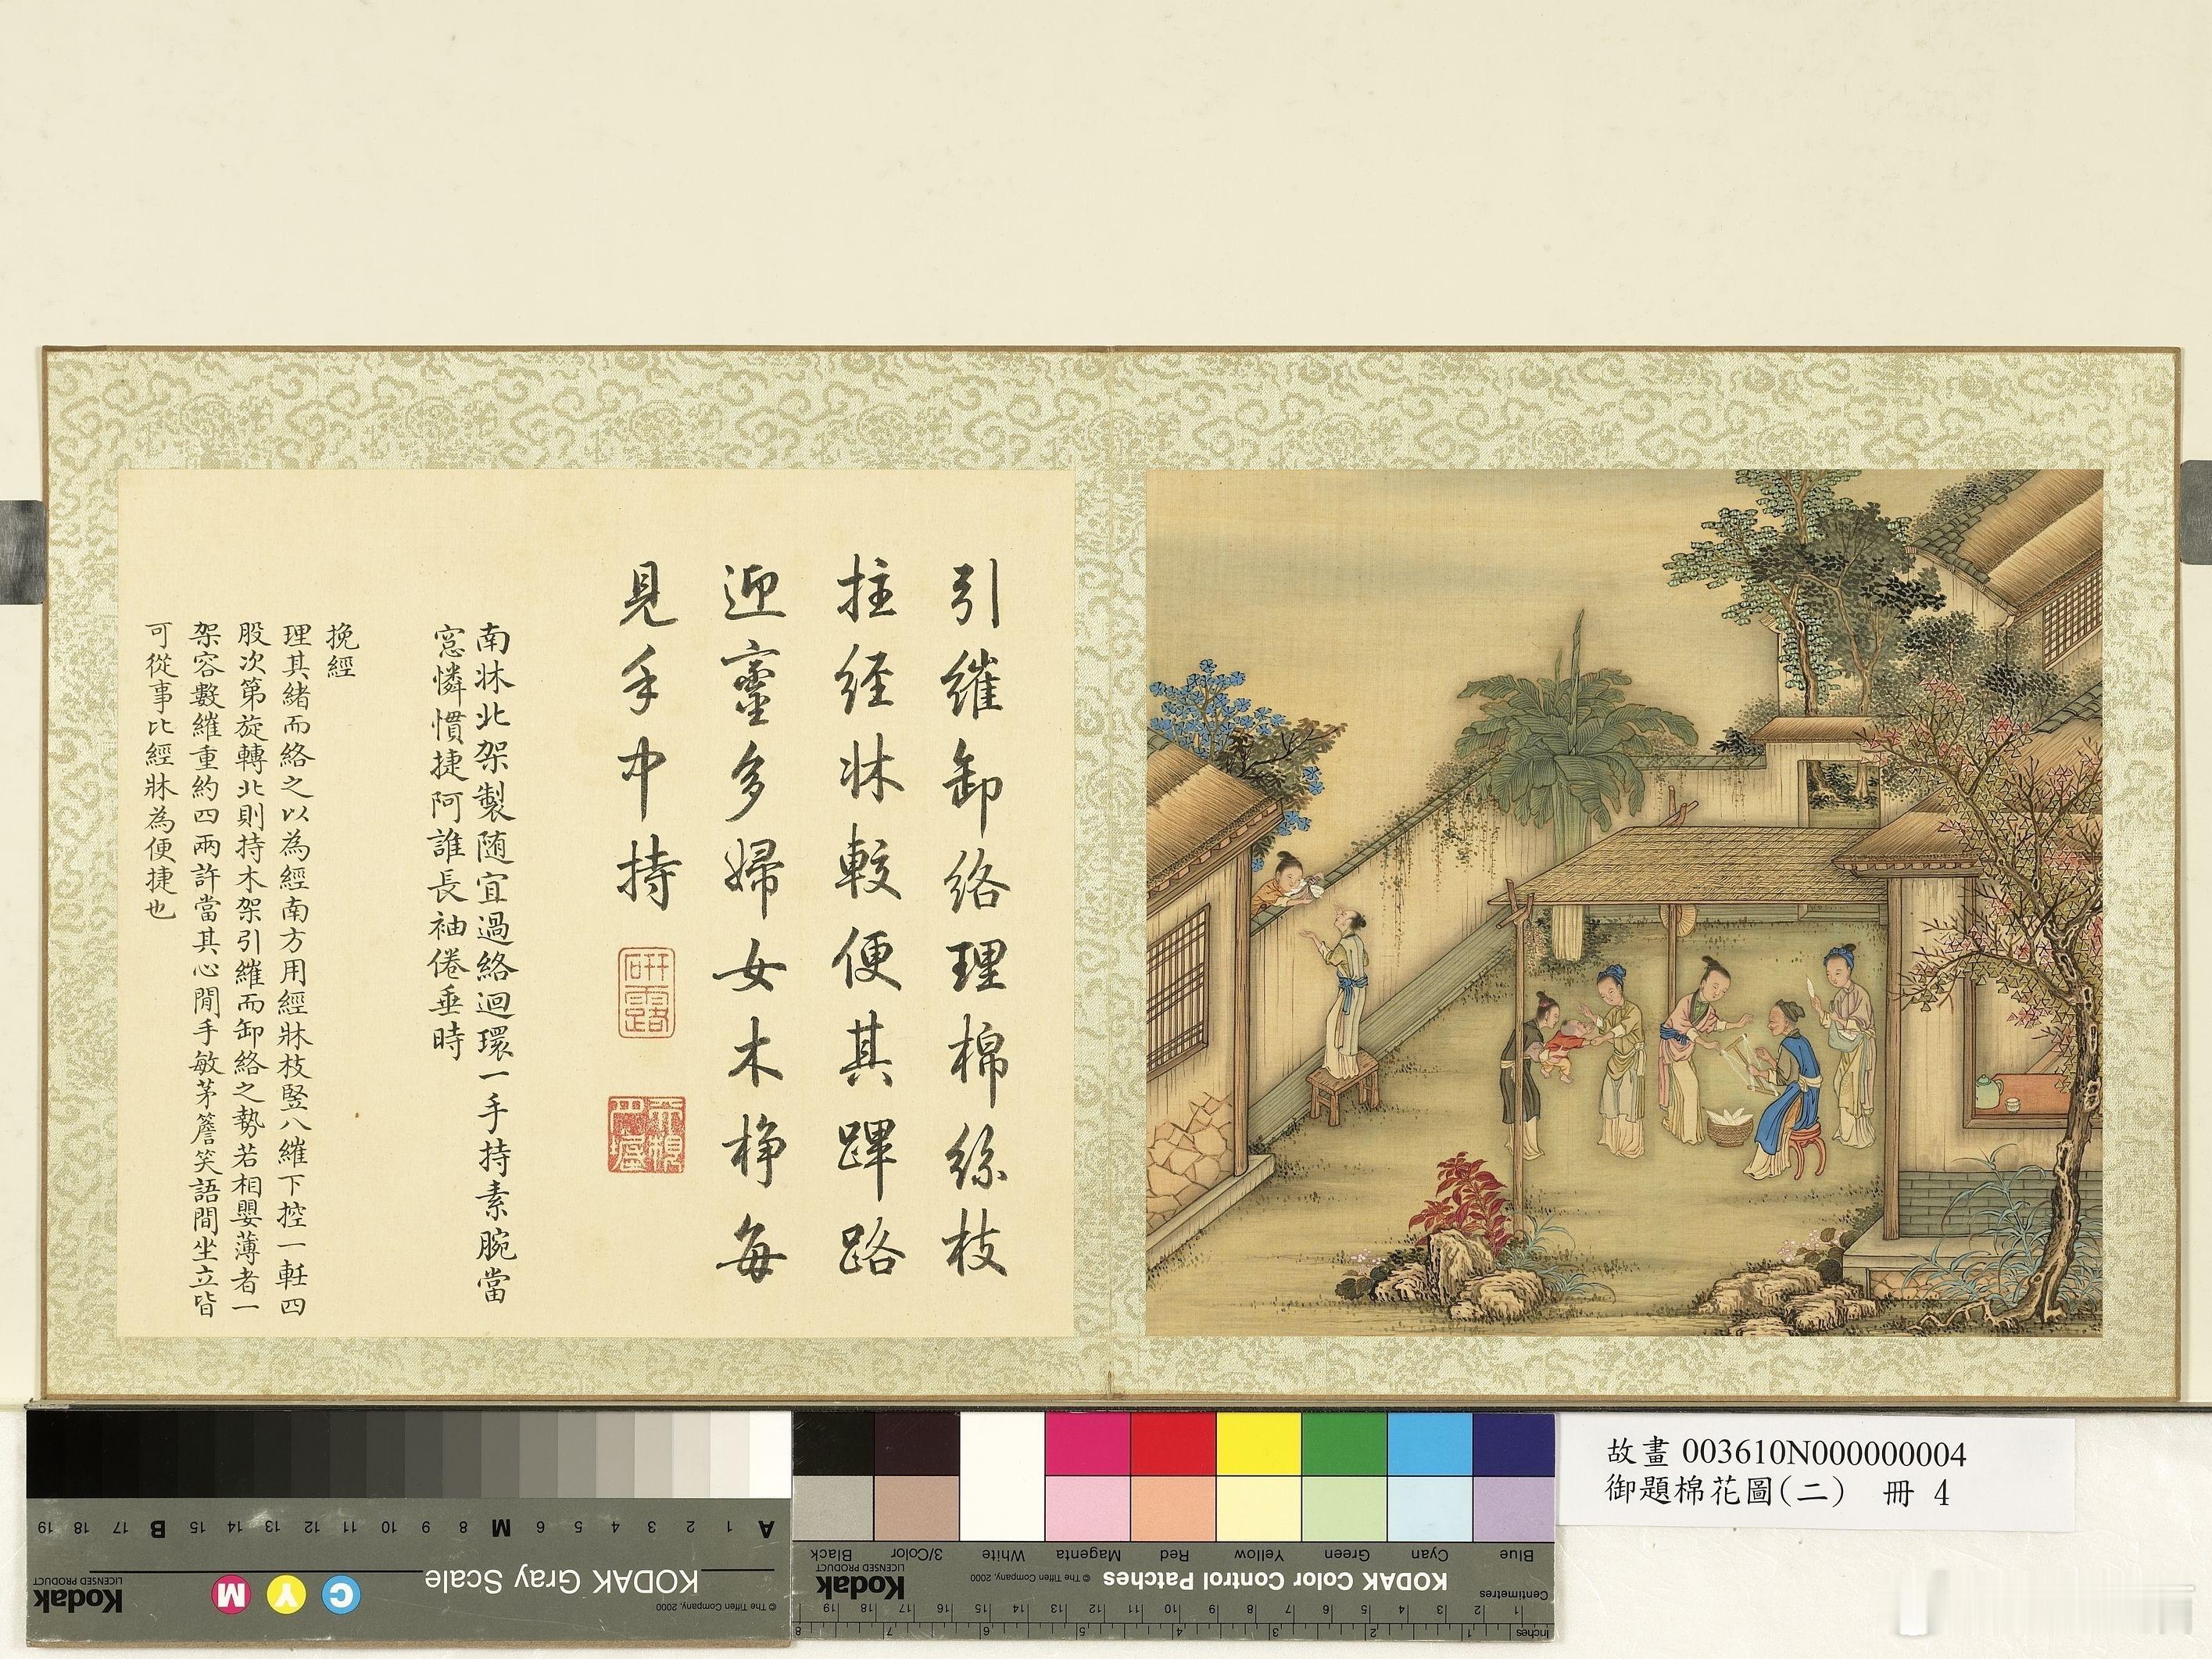 引䌖卸絡理棉絲枝
拄經牀較便其蹕路
迎鑾多婦女木桛每
見手中持
研露
南牀北架製隨宜過絡迴環一手持素腕當
窓憐慣捷阿誰長袖倦垂時
挽經
理其緒而絡之以為經南方用經牀枝竪八䌖下控一軖四
股次第旋轉北則持木架引䌖而卸絡之勢若相嬰薄者一
架容數䌖重約四兩許當其心閒手敏茅簷笑語間坐立皆
可從事比經牀為便捷也
故畫 003610N000000004
御題棉花圖(二) 冊 4
KODAK Gray Scale
Kodak
LICENSED PRODUCT
C Y M
© The Tiffen Company, 2000
A 1 2 3 4 5 6 M 8 9 10 11 12 13 14 15 B 17 18 19
KODAK Color Control Patches
© The Tiffen Company, 2000
Kodak
LICENSED PRODUCT
Blue Cyan Green Yellow Red Magenta White 3/Color Black
Centimetres
1 2 3 4 5 6 7 8 9 10 11 12 13 14 15 16 17 18 19
Inches
1 2 3 4 5 6 7 8